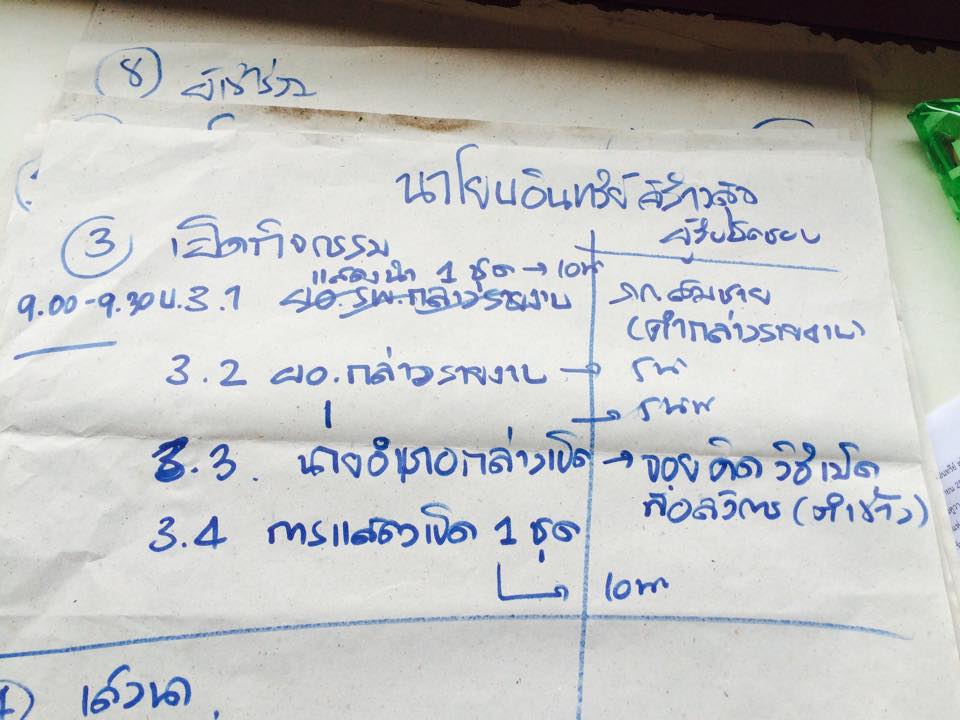 ⑧ ผู้เข้าร่วม
นาโยนอินทรีย์สร้างสุข
③ เปิดกิจกรรม
ผู้รับผิดชอบ
แสดงนำ 1 ชุด →
9.00-9.30 น. 3.1 ผอ.รพ.กล่าวรายงาน
ภก.สมชาย
(คำกล่าวรายงาน)
3.2 ผอ.กล่าวรายงาน →
3.3 นายอำเภอกล่าวเปิด → จอย คิด วิธีเปิด
(ตำข้าว)
3.4 การแสดงเปิด 1 ชุด
เสวนา